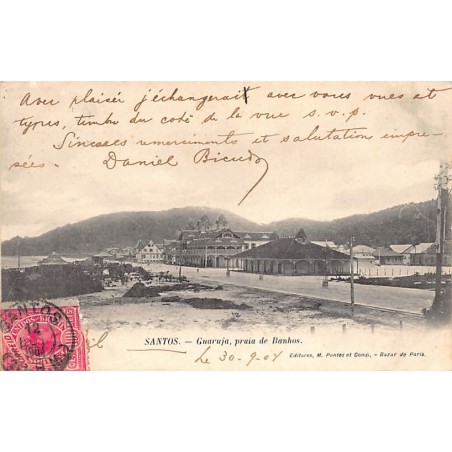 Avec plaisir j'échangerait avec vous vues et
types, timbre du coté de la vue s.v.p.
Sincères remerciments et salutation empre-
ssées. Daniel Bicudo
SANTOS. — Guaruja, praia de Banhos.
Le 30-9-04
Editores, M. Pontes et Comp. - Bazar de Paris.
SANTOS